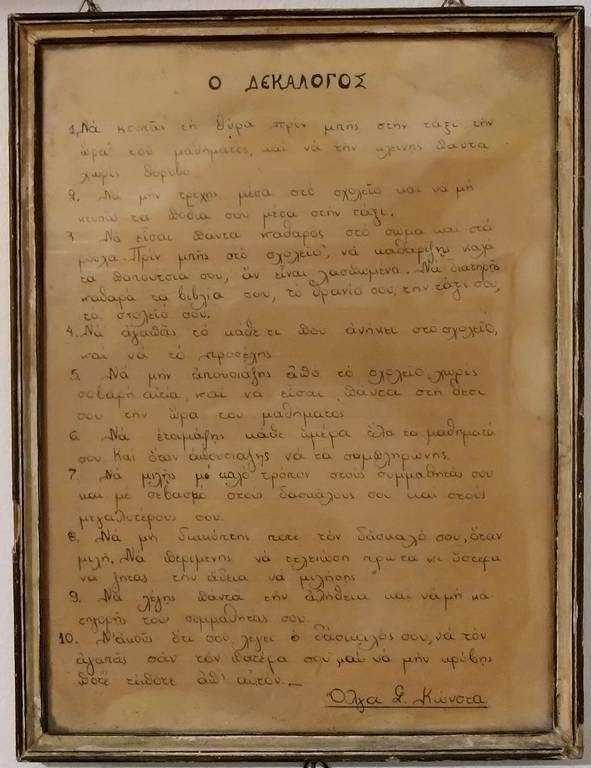 Ο ΔΕΚΑΛΟΓΟΣ
1. Νά κτυπᾶς τή θύρα πρίν μπῆς στήν τάξι τήν
ὥρα τοῦ μαθήματος, καί νά τήν κλείνης πάντα
χωρίς θόρυβο
2. Νά μήν τρέχης μέσα στό σχολεῖο καί να μή
κτυπᾶς τα πόδια σου μέσα στην τάξι.
3. Νά εἶσαι πάντα καθαρός στό σῶμα και στά
ροῦχα. Πρίν μπῆς στό σχολεῖο, νά καθαρίζης καλά
τα παπούτσια σου, ἄν εἶναι λασπωμένα. Νά διατηρῆς
καθαρά τα βιβλία σου, τό θρανίο σου, την τάξι σου,
το σχολείο σου.
4. Νά ἀγαπᾶς τό κάθε τι που ἀνήκει στό σχολεῖο,
και νά τό προσέχης
5. Νά μην ἀπουσιάζης ἀπό τό σχολεῖο χωρίς
σοβαρή αἰτία και νά εἶσαι πάντα στη θέσι
σου την ὥρα του μαθήματος
6. Νά ἑτοιμάζης κάθε ἡμέρα ὅλα τα μαθήματά
σου Και ὅταν ἀπουσιάζης νά τά συμπληρώνης.
7. Νά μιλῆς μέ καλό τρόπον στους συμμαθητάς σου
και μέ σεβασμό στους δασκάλους σου και στους
μεγαλυτέρους σου
8. Νά μή διακόπτης ποτέ τόν δάσκαλό σου, ὅταν
μιλῆ. Νά περιμένης νά τελειώση πρῶτα κι ὕστερα
νά ζητᾶς τήν ἄδεια νά μιλήσης
9. Νά λέγης πάντα τήν ἀλήθεια και νά μή κα
τηγορῆς τους συμμαθητάς σου.
10. Ν'ἀκοῦς ὅτι σοῦ λέγει ὁ δάσκαλός σου, νά τόν
ἀγαπᾶς σάν τόν πατέρα σου και νά μήν κρύβης
ποτέ τίποτε ἀπ' αὐτόν.—
Ὄλγα Σ. Κώνστα.